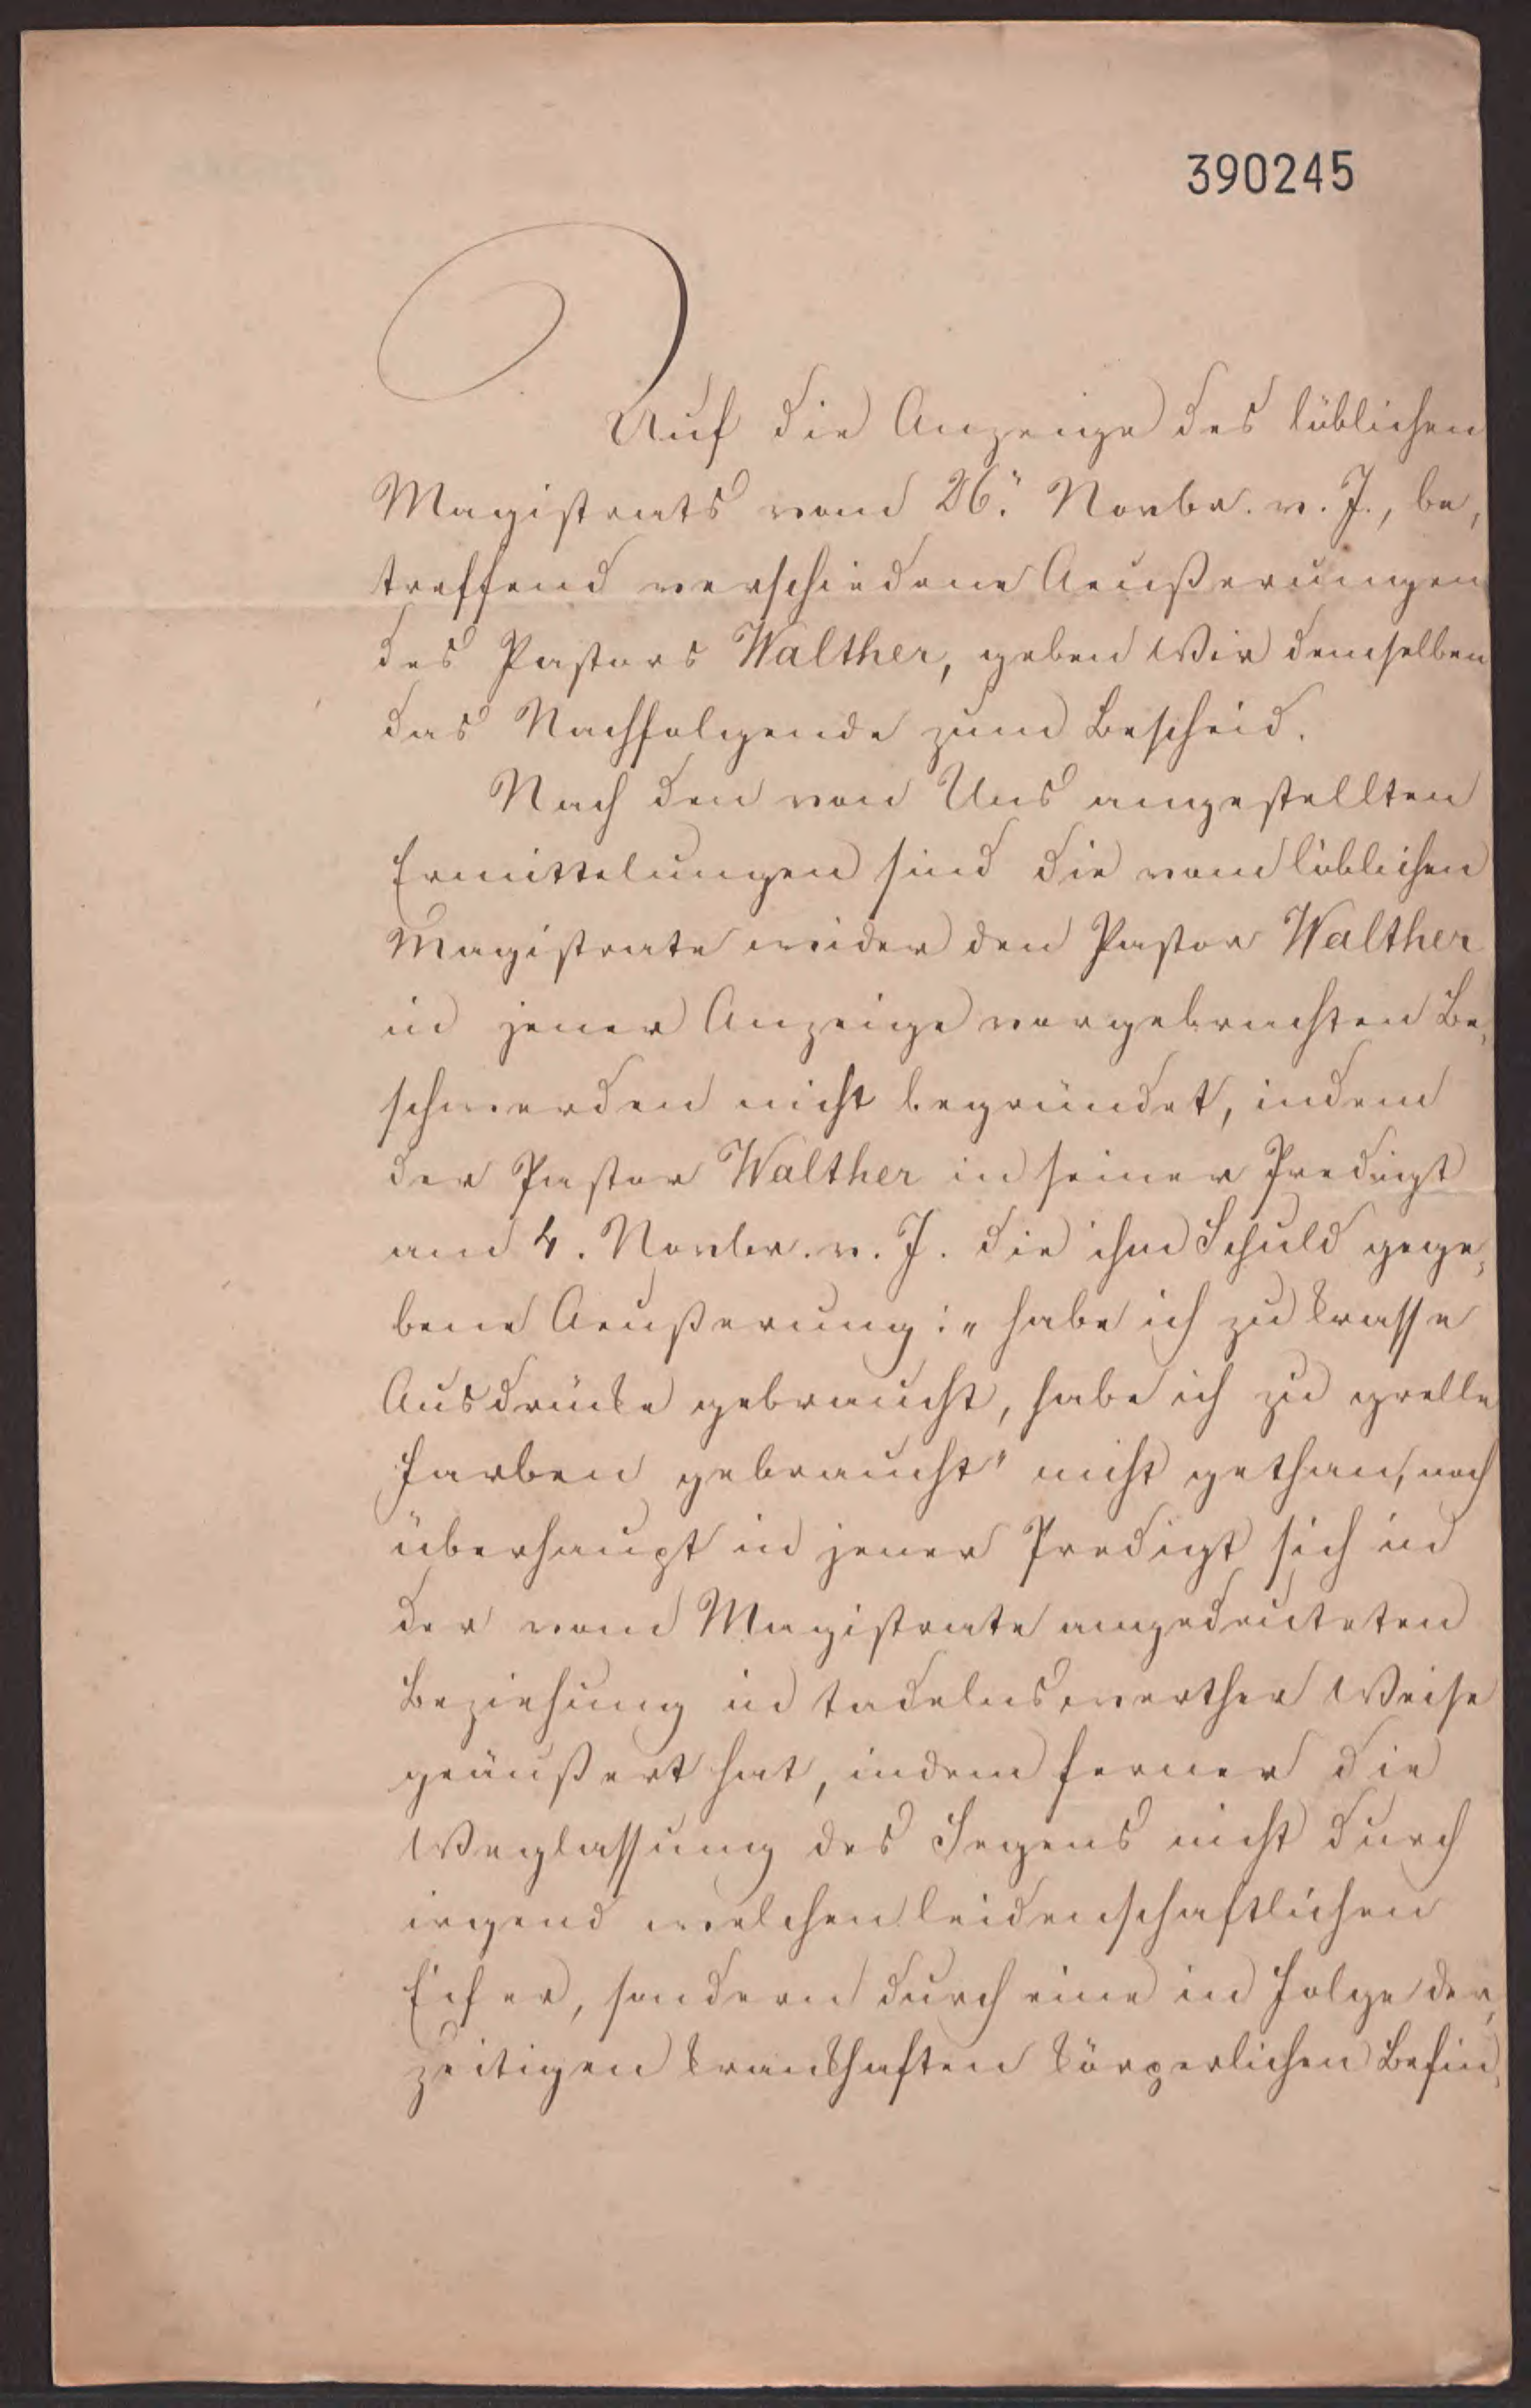 390245
Auf die Anzeige des löblichen
Magistrats vom 26. Novbr. v. J., be,
treffend verschiedene Aeußerungen
des Pastors Walther, geben Wir demselben
das Nachfolgende zum Bescheid.
Nach den von Uns angestellten
Ermittelungen sind die vom löblichen
Magistrate wider den Pastor Walther
in jener Anzeige vorgebrachten Be,
schwerden nicht begründet, indem
der Pastor Walther in seiner Predigt
am 4. Novbr. v. J. die ihm Schuld gege,
bene Aeußerung: „habe ich zu krasse
Ausdrücke gebraucht, habe ich zu grelle
Farben gebraucht" nicht gethan, noch
überhaupt in jener Predigt sich in
der vom Magistrate angedeuteten
Beziehung in tadelnswerther Weise
geäußert hat, indem ferner die
Weglassung des Segens nicht durch
irgend welchen leidenschaftlichen
Eifer, sondern durch eine in Folge der,
zeitigen krankhaften körperlichen Befin,